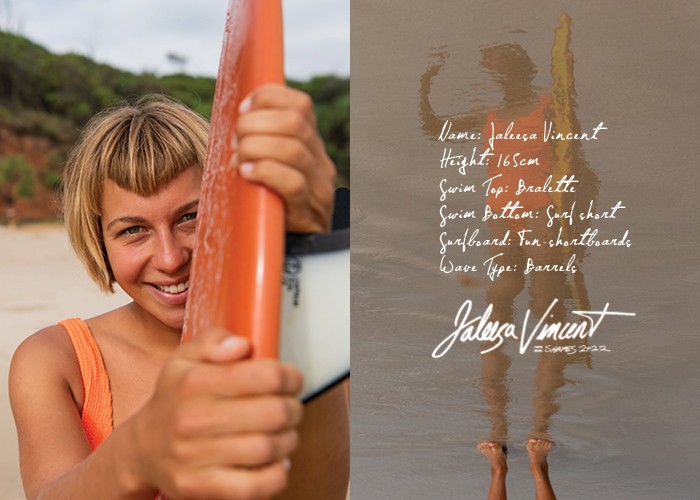 Name: Jaleesa Vincent
Height: 165cm
Swim Top: Bralette
Swim Bottom: Surf short
Surfboard: Fun-shortboards
Wave Type: Barrels
Jaleesa Vincent